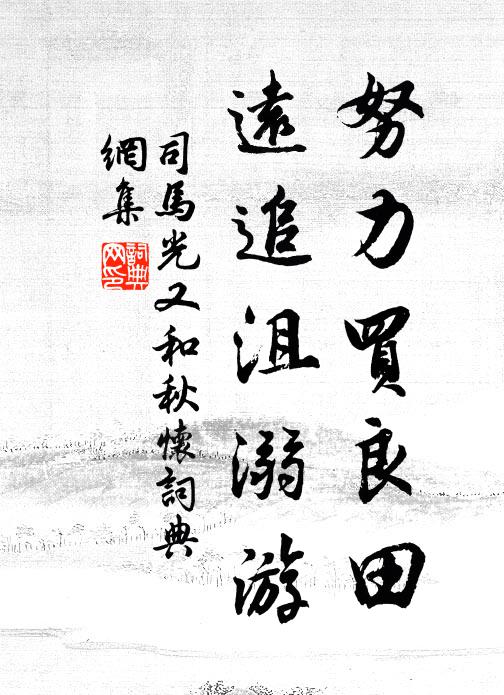 努力買良田
遠追沮溺游
司馬光又和秋懷詞典
網集
詞典
网印